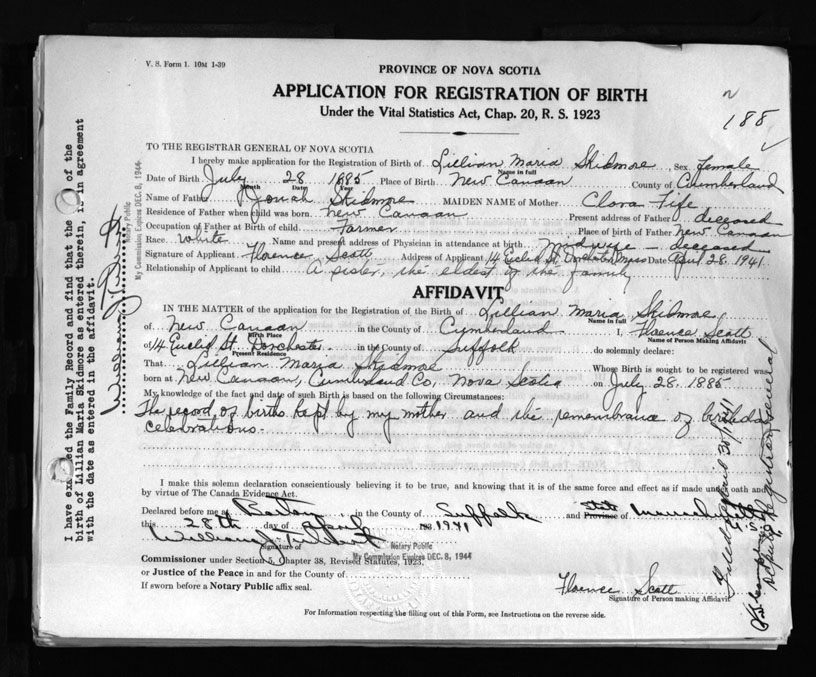 V. S. Form 1. 10M 1-39
PROVINCE OF NOVA SCOTIA
APPLICATION FOR REGISTRATION OF BIRTH
Under the Vital Statistics Act, Chap. 20, R. S. 1923
188
TO THE REGISTRAR GENERAL OF NOVA SCOTIA
I hereby make application for the Registration of Birth of Lillian Maria Skidmore, Sex Female
Name in full
Date of Birth July 28 1885 Place of Birth New Canaan County of Cumberland
Month Date Year
Name of Father Josiah Skidmore MAIDEN NAME of Mother Clora Fife
Residence of Father when child was born. New Canaan Present address of Father deceased
Occupation of Father at Birth of child Farmer Place of birth of Father New Canaan
Race. white Name and present address of Physician in attendance at birth Midwife - deceased
Signature of Applicant Florence Scott Address of Applicant 14 Euclid St Dorchester Mass Date April 28. 1941
Relationship of Applicant to child A sister, the eldest of the family
AFFIDAVIT
IN THE MATTER of the application for the Registration of the Birth of Lillian Maria Skidmore,
Name in full
of New Canaan in the County of Cumberland I, Florence Scott
Birth Place Name of Person Making Affidavit
of 14 Euclid St. Dorchester in the County of Suffolk do solemnly declare:
Present Residence
That Lillian Maria Skidmore Whose Birth is sought to be registered was
born at New Canaan, Cumberland Co, Nova Scotia on July 28. 1885
My knowledge of the fact and date of such Birth is based on the following Circumstances:
The record of births kept by my mother and the remembrance of birthday
celebrations.
I make this solemn declaration conscientiously believing it to be true, and knowing that it is of the same force and effect as if made under oath and
by virtue of The Canada Evidence Act.
Declared before me at Boston in the County of Suffolk and Province of state Massachusetts
this 28th day of April 1941 U.S.A.
Signature of Notary Public
My Commission Expires DEC. 8, 1944
Commissioner under Section 5, Chapter 38, Revised Statutes, 1923.
or Justice of the Peace in and for the County of
If sworn before a Notary Public affix seal.
Florence Scott
Signature of Person making Affidavit
For Information respecting the filling out of this Form, see Instructions on the reverse side.
I have examined the Family Record and find that the date of the
birth of Lillian Maria Skidmore as entered therein, is in agreement
with the date as entered in the affidavit.
Notary Public
My Commission Expires DEC. 8, 1944
Filed April 30/1941
Deputy Registrar General